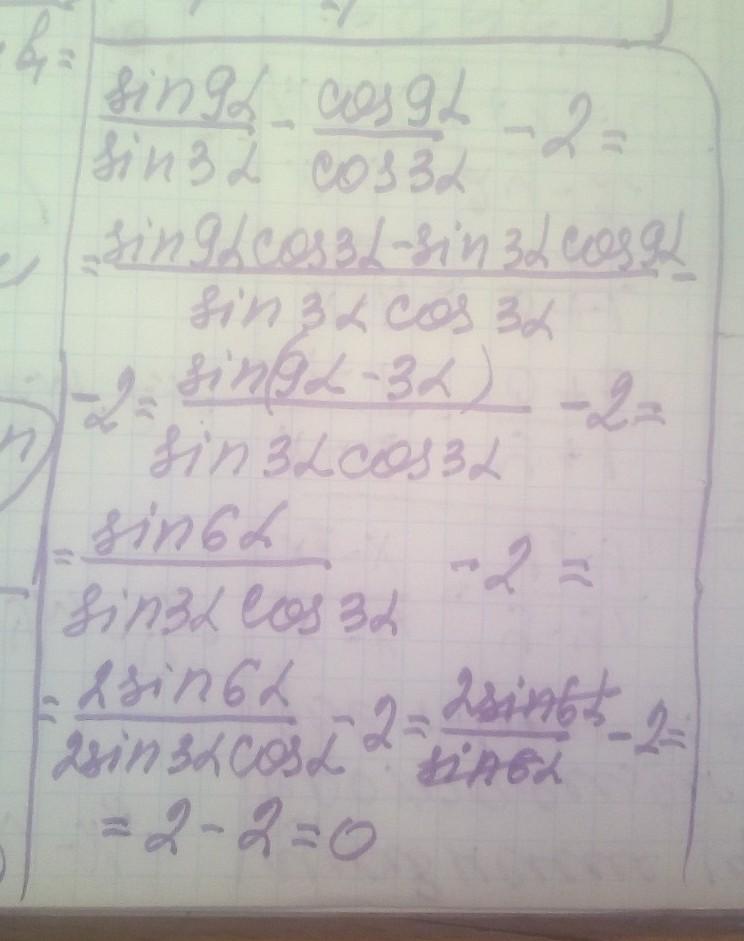 sin9α/sin3α - cos9α/cos3α - 2 =
= (sin9αcos3α-sin3αcos9α)/(sin3α cos3α) -
-2 = sin(9α-3α)/(sin3αcos3α) -2=
= sin6α/(sin3αcos3α) -2 =
= 2sin6α/(2sin3αcosα) -2= 2sin6α/sin6α -2=
= 2-2=0